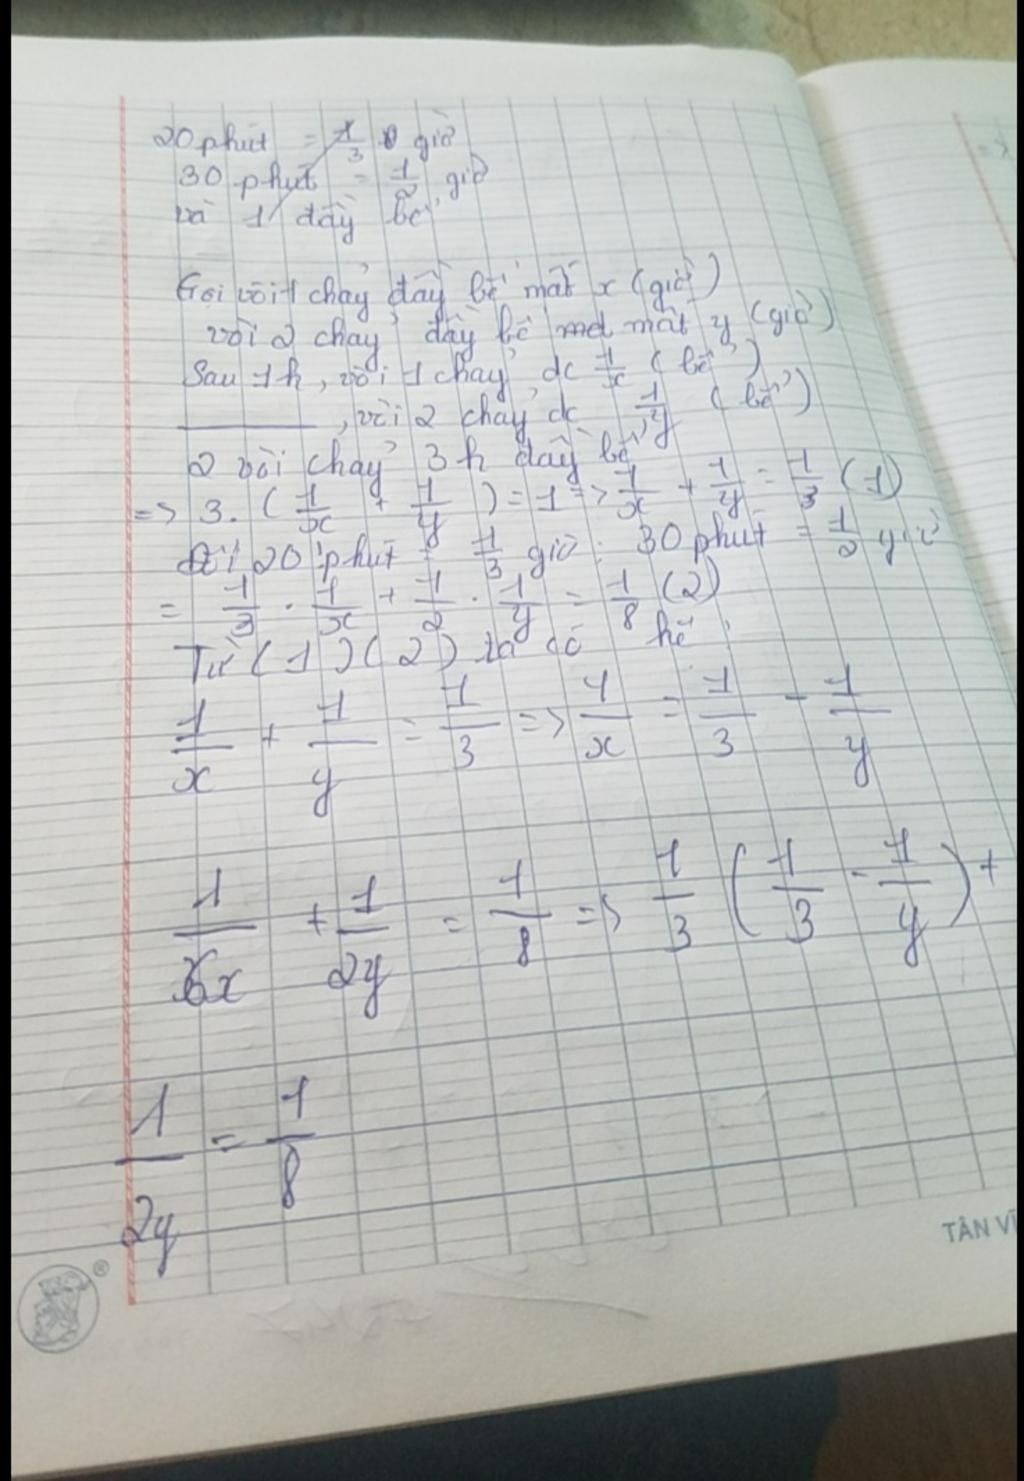 20 phút = 1/3 giờ
30 phút = 1/2 giờ
và 1 đầy bể
Gọi vòi 1 chảy đầy bể mất x (giờ)
vòi 2 chảy đầy bể mất y (giờ)
Sau 1h, vòi 1 chảy dc 1/x (bể)
, vòi 2 chảy dc 1/y (bể)
2 vòi chảy 3h đầy bể
=> 3. (1/x + 1/y) = 1 => 1/x + 1/y = 1/3 (1)
Đổi 20 phút = 1/3 giờ; 30 phút = 1/2 giờ
= 1/3 . 1/x + 1/2 . 1/y = 1/8 (2)
Từ (1)(2) ta có hệ:
1/x + 1/y = 1/3 => 1/x = 1/3 - 1/y
1/3x + 1/2y = 1/8 => 1/3 (1/3 - 1/y) +
1/2y = 1/8
TÂN VĨ